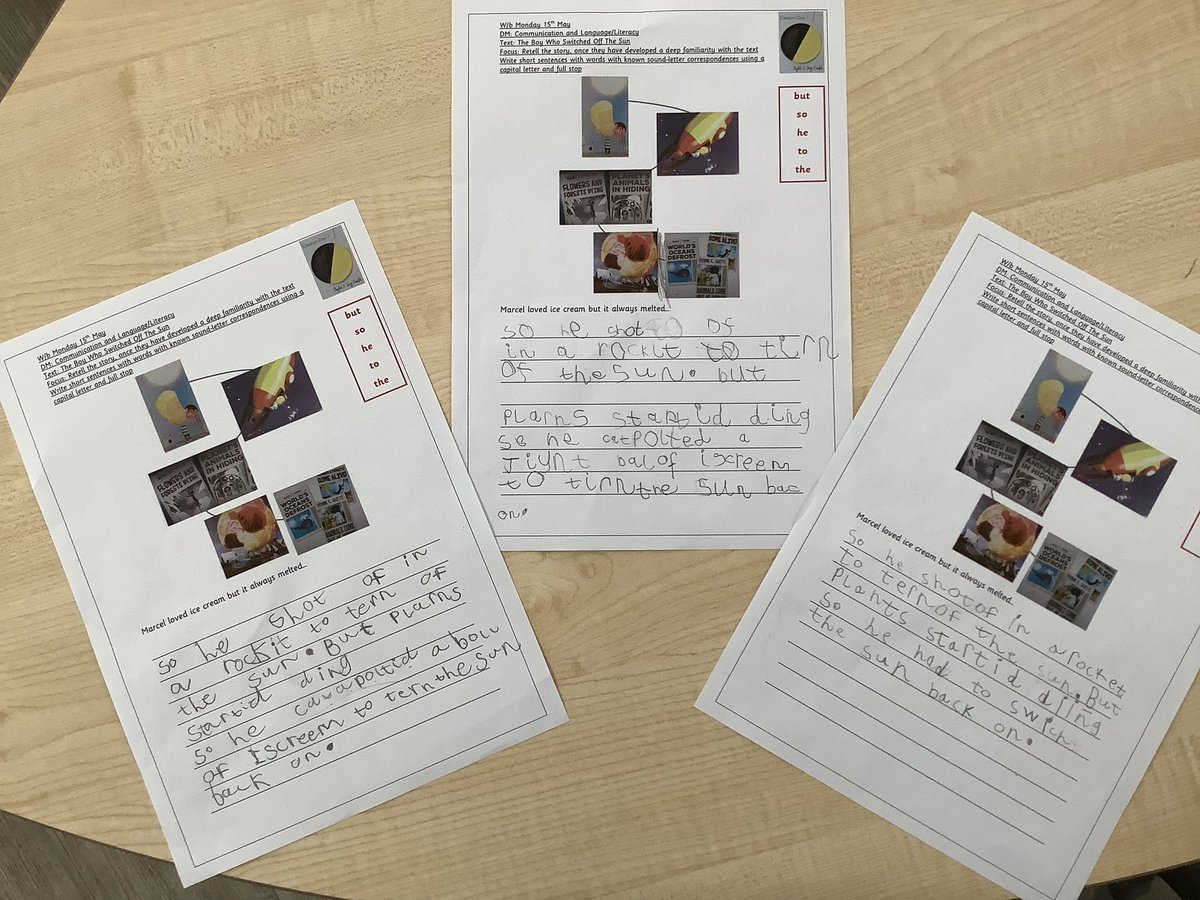 W/b Monday 15th May
DM: Communication and Language/Literacy
Text: The Boy Who Switched Off The Sun
Focus: Retell the story, once they have developed a deep familiarity with the text
Write short sentences with words with known sound-letter correspondences using a
capital letter and full stop
Night & Day Craft
but
so
he
to
the
FLOWERS AND
FORESTS DYING
PLANET'S
ANIMALS
IN HIDING
WORLD'S
OCEANS
DEFROST
DOME ALIVE
Marcel loved ice cream but it always melted...
so he shot of in
a rockit to tern of
the sun. But Plarns
startid ding
so he catapoltid a boll
of Iscreem to tern the sun
back on.
W/b Monday 15th May
DM: Communication and Language/Literacy
Text: The Boy Who Switched Off The Sun
Focus: Retell the story, once they have developed a deep familiarity with the text
Write short sentences with words with known sound-letter correspondences using a
capital letter and full stop
Creation Day 1
Night & Day Craft
but
so
he
to
the
FLOWERS AND
FORESTS DYING
PLANET'S
ANIMALS
IN HIDING
WORLD'S
OCEANS
DEFROST
Marcel loved ice cream but it always melted...
so he shot of
in a rockit to tirn
of the sun. but
Plarns startid ding
so he catpolted a
Jiynt bal of iscreem
to tirn the sun bac
on.
W/b Monday 15th May
DM: Communication and Language/Literacy
Text: The Boy Who Switched Off The Sun
Focus: Retell the story, once they have developed a deep familiarity with the
Write short sentences with words with known sound-letter correspondences
capital letter and full stop
FLOWERS AND
FORESTS DYING
ANIMALS
IN HIDING
WORLD'S
OCEANS
DEFROST
Marcel loved ice cream but it always melted...
so he shot of in a rocket
to tern of the sun. But
Plants startid diing
so he had to swich
the sun back on.